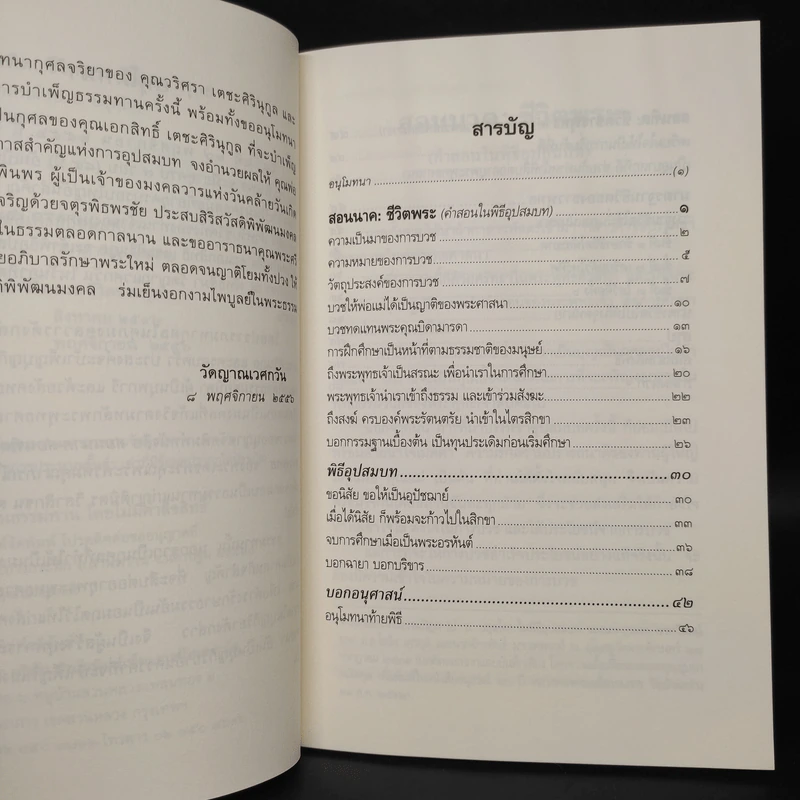 ทนากุศลจริยาของ คุณวริศรา เตชะศิรินุกูล และ
ารบำเพ็ญธรรมทานครั้งนี้ พร้อมทั้งขออนุโมทนา
ป็นกุศลของคุณเอกสิทธิ์ เตชะศิรินุกูล ที่จะบำเพ็ญ
าสสำคัญแห่งการอุปสมบท จงอำนวยผลให้ คุณพ่อ
พินพร ผู้เป็นเจ้าของมงคลวารแห่งวันคล้ายวันเกิด
จริญด้วยจตุรพิธพรชัย ประสบสิริสวัสดิพิพัฒนมงคล
ในธรรมตลอดกาลนาน และขออาราธนาคุณพระศรี
ยอภิบาลรักษาพระใหม่ ตลอดจนญาติโยมทั้งปวง ให้
ดิพิพัฒนมงคล ร่มเย็นงอกงามไพบูลย์ในพระธรรม
วัดญาณเวศกวัน
๘ พฤศจิกายน ๒๕๕๖
สารบัญ
อนุโมทนา (๑)
สอนนาค: ชีวิตพระ (คำสอนในพิธีอุปสมบท) ๑
ความเป็นมาของการบวช ๒
ความหมายของการบวช ๕
วัตถุประสงค์ของการบวช ๗
บวชให้พ่อแม่ได้เป็นญาติของพระศาสนา ๑๐
บวชทดแทนพระคุณบิดามารดา ๑๓
การฝึกศึกษาเป็นหน้าที่ตามธรรมชาติของมนุษย์ ๑๖
ถึงพระพุทธเจ้าเป็นสรณะ เพื่อนำเราในการศึกษา ๒๐
พระพุทธเจ้านำเราเข้าถึงธรรม และเข้าร่วมสังฆะ ๒๒
ถึงสงฆ์ ครบองค์พระรัตนตรัย นำเข้าในไตรสิกขา ๒๓
บอกกรรมฐานเบื้องต้น เป็นทุนประเดิมก่อนเริ่มศึกษา ๒๖
พิธีอุปสมบท ๓๐
ขอนิสัย ขอให้เป็นอุปัชฌาย์ ๓๐
เมื่อได้นิสัย ก็พร้อมจะก้าวไปในสิกขา ๓๓
จบการศึกษาเมื่อเป็นพระอรหันต์ ๓๖
บอกฉายา บอกบริขาร ๓๘
บอกอนุศาสน์ ๔๒
อนุโมทนาท้ายพิธี ๔๖